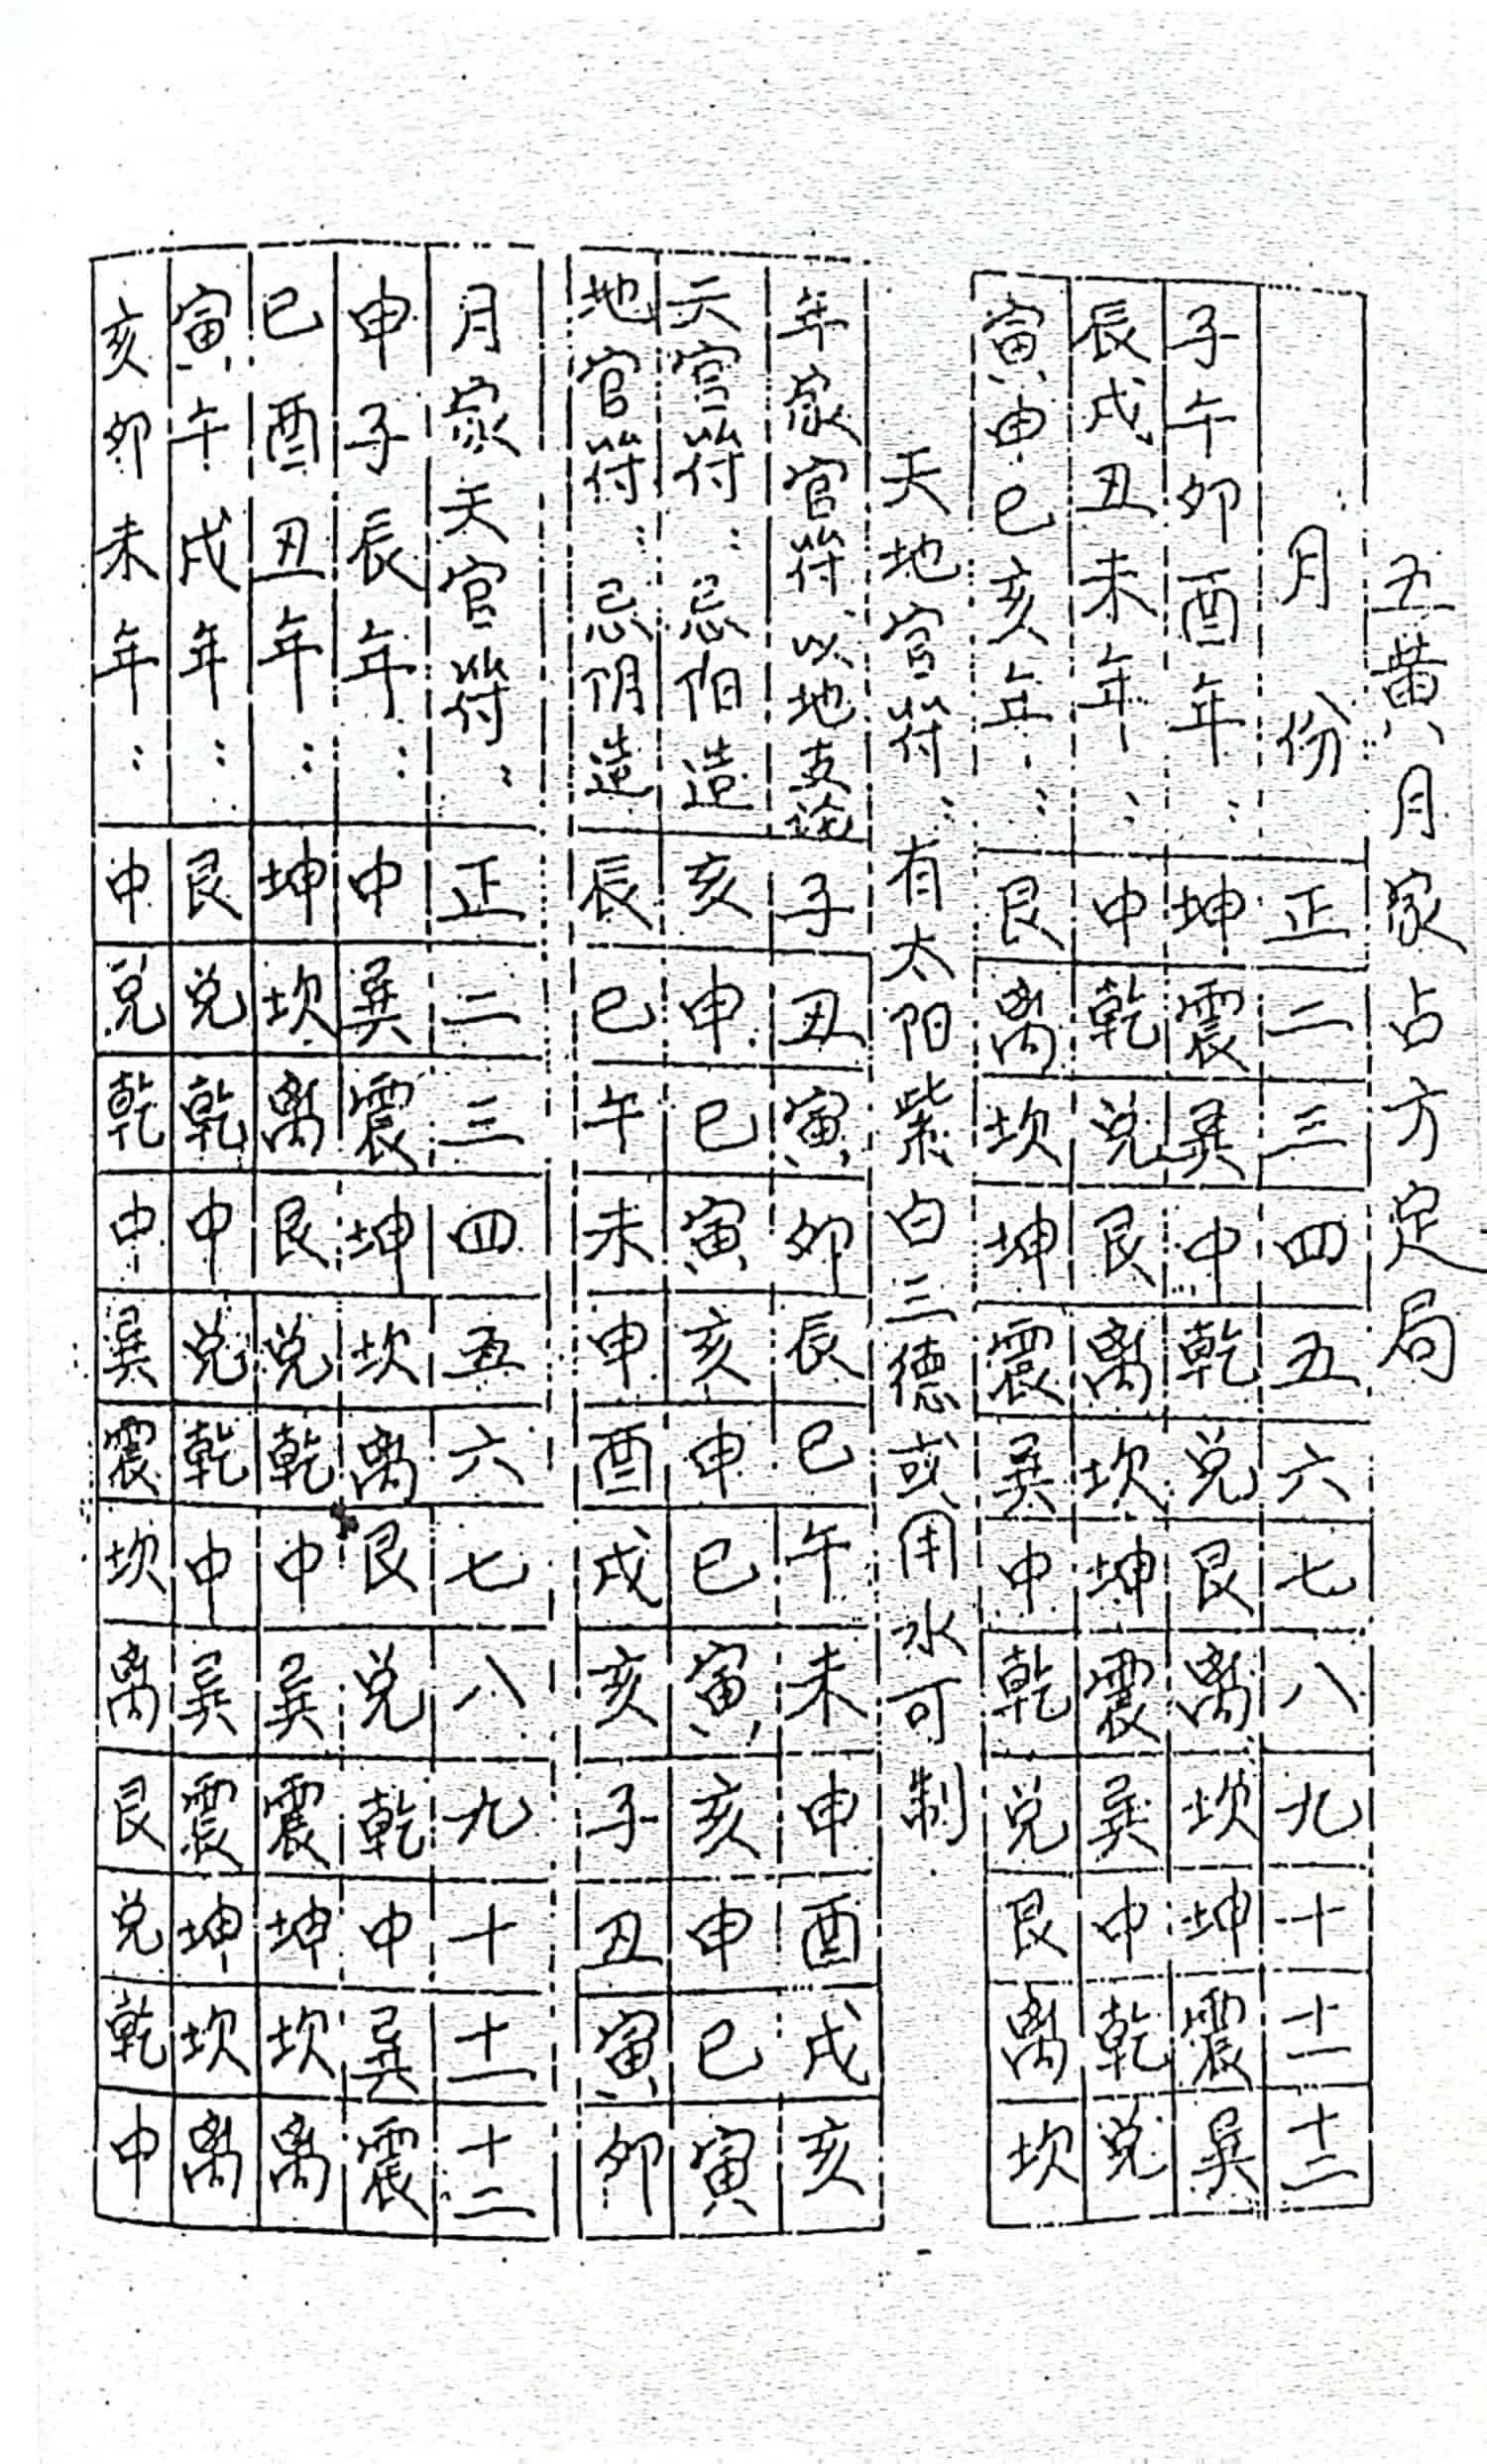 五黄月家占方定局
月份 正 二 三 四 五 六 七 八 九 十 十一 十二
子午卯酉年: 坤 震 巽 中 乾 兑 艮 离 坎 坤 震 巽
辰戌丑未年: 中 乾 兑 艮 离 坎 坤 震 巽 中 乾 兑
寅申巳亥年: 艮 离 坎 坤 震 巽 中 乾 兑 艮 离 坎
天地官符:有太阳紫白三德或用水可制.
年家官符以地支论 子 丑 寅 卯 辰 巳 午 未 申 酉 戌 亥
天官符:忌阳造 亥 申 巳 寅 亥 申 巳 寅 亥 申 巳 寅
地官符:忌阴造 辰 巳 午 未 申 酉 戌 亥 子 丑 寅 卯
月家天官符: 正 二 三 四 五 六 七 八 九 十 十一 十二
申子辰年: 中 巽 震 坤 坎 离 艮 兑 乾 中 巽 震
巳酉丑年: 坤 坎 离 艮 兑 乾 中 巽 震 坤 坎 离
寅午戌年: 艮 兑 乾 中 兑 乾 中 巽 震 坤 坎 离
亥卯未年: 中 兑 乾 中 巽 震 坎 离 艮 兑 乾 中